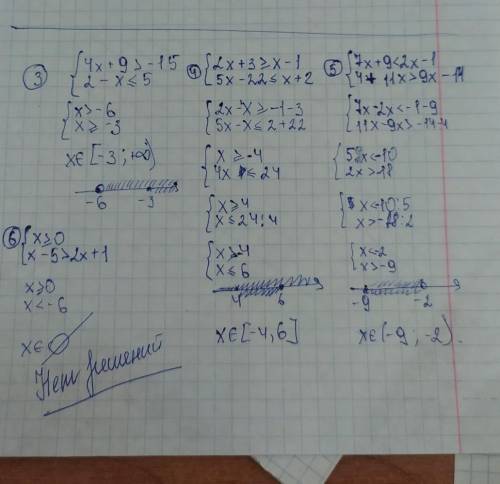 ③ {4x+9>-15
2-x≤5
{x>-6
x≥-3
x∈[-3;+∞)
-6 -3
④ {2x+3≥x-1
5x-22≤x+2
{2x-x≥-1-3
5x-x≤2+22
{x≥-4
4x≤24
{x≥4
x≤24:4
{x≥-4
x≤6
4 6
x∈[-4,6]
⑤ {7x+9<2x-1
4+11x>9x-14
{7x-2x<-1-9
11x-9x>-14-4
{5x<-10
2x>18
{x<-10:5
x>-18:2
{x<-2
x>-9
-9 -2
x∈(-9;-2).
⑥ {x≥0
x-5>2x+1
x≥0
x<-6
x∈∅
Нет решений